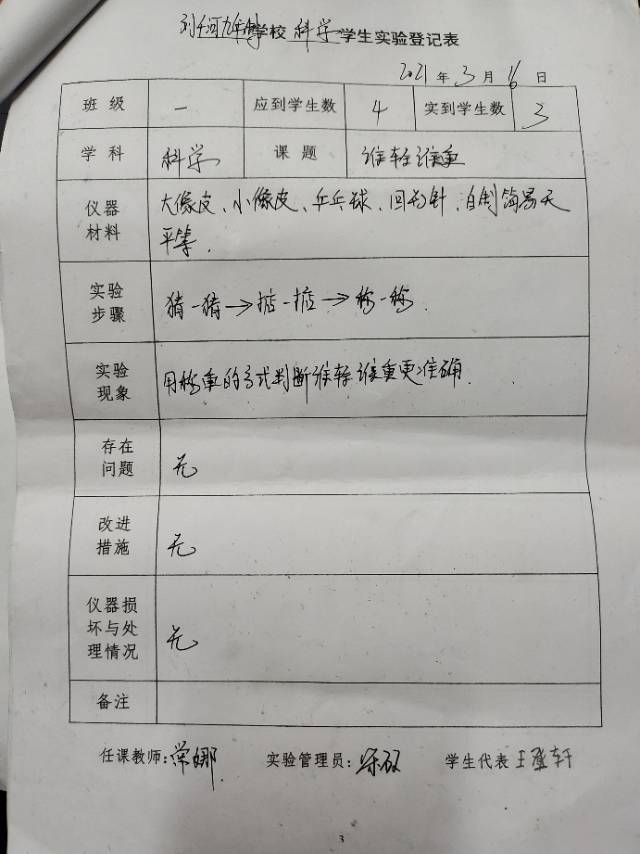 学校 科学 学生实验登记表
2021 年 3 月 16 日
班 级 一 应到学生数 4 实到学生数 3
学 科 科学 课 题 谁轻谁重
仪器 大橡皮、小橡皮、乒乓球、回形针、自制简易天
材料 平等.
实验 猜一猜→掂一掂→称一称.
步骤
实验 用称重的方式判断谁轻谁重更准确.
现象
存在
问题 无
改进
措施 无
仪器损
坏与处 无
理情况
备注
任课教师: 常娜 实验管理员: 学生代表 王 轩
3